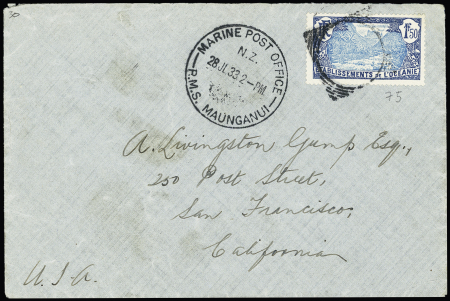 30
MARINE POST OFFICE
N.Z.
28 JL 33 2-PM
R.M.S. MAUNGANUI
1F50
ETABLISSEMENTS de L'OCÉANIE
75
A. Livingston Gump Esq.,
250 Post Street,
San Francisco,
California
U.S.A.